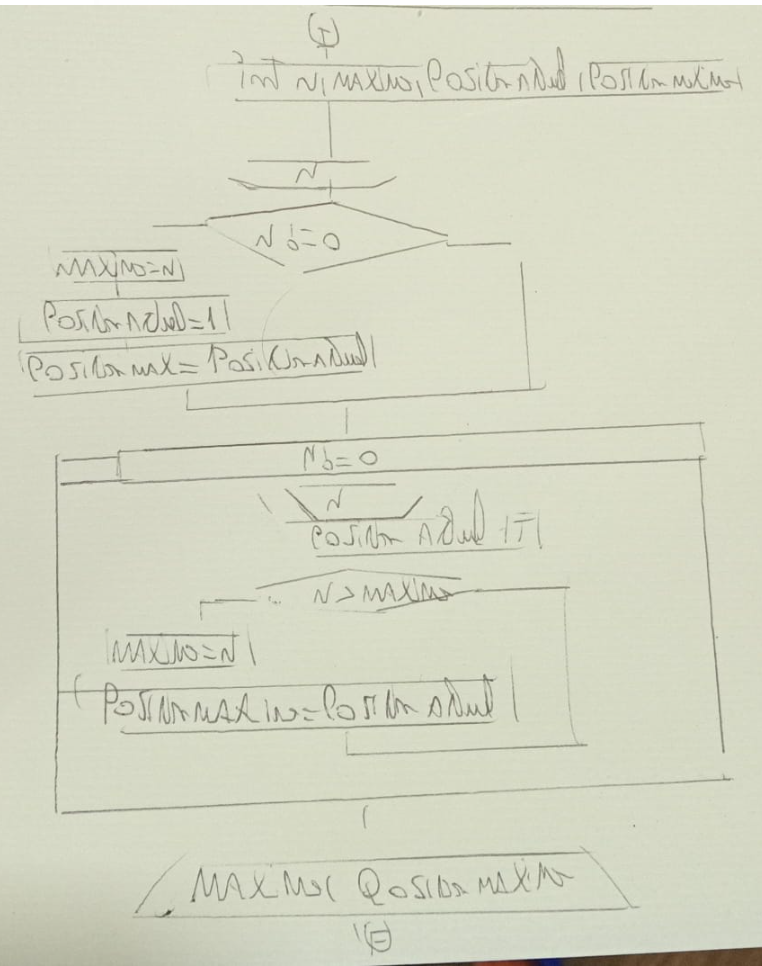 (I)
int N, MAXIMO, Posición Actual, Posición máximo
N
N != 0
MAXIMO=N
Posición Actual=1
Posición MAX = Posición Actual
N != 0
N
Posición Actual
N > MAXIMO
MAXIMO=N
Posición MAXIMO=Posición Actual
MAXIMO Posición MAXIMO
(F)